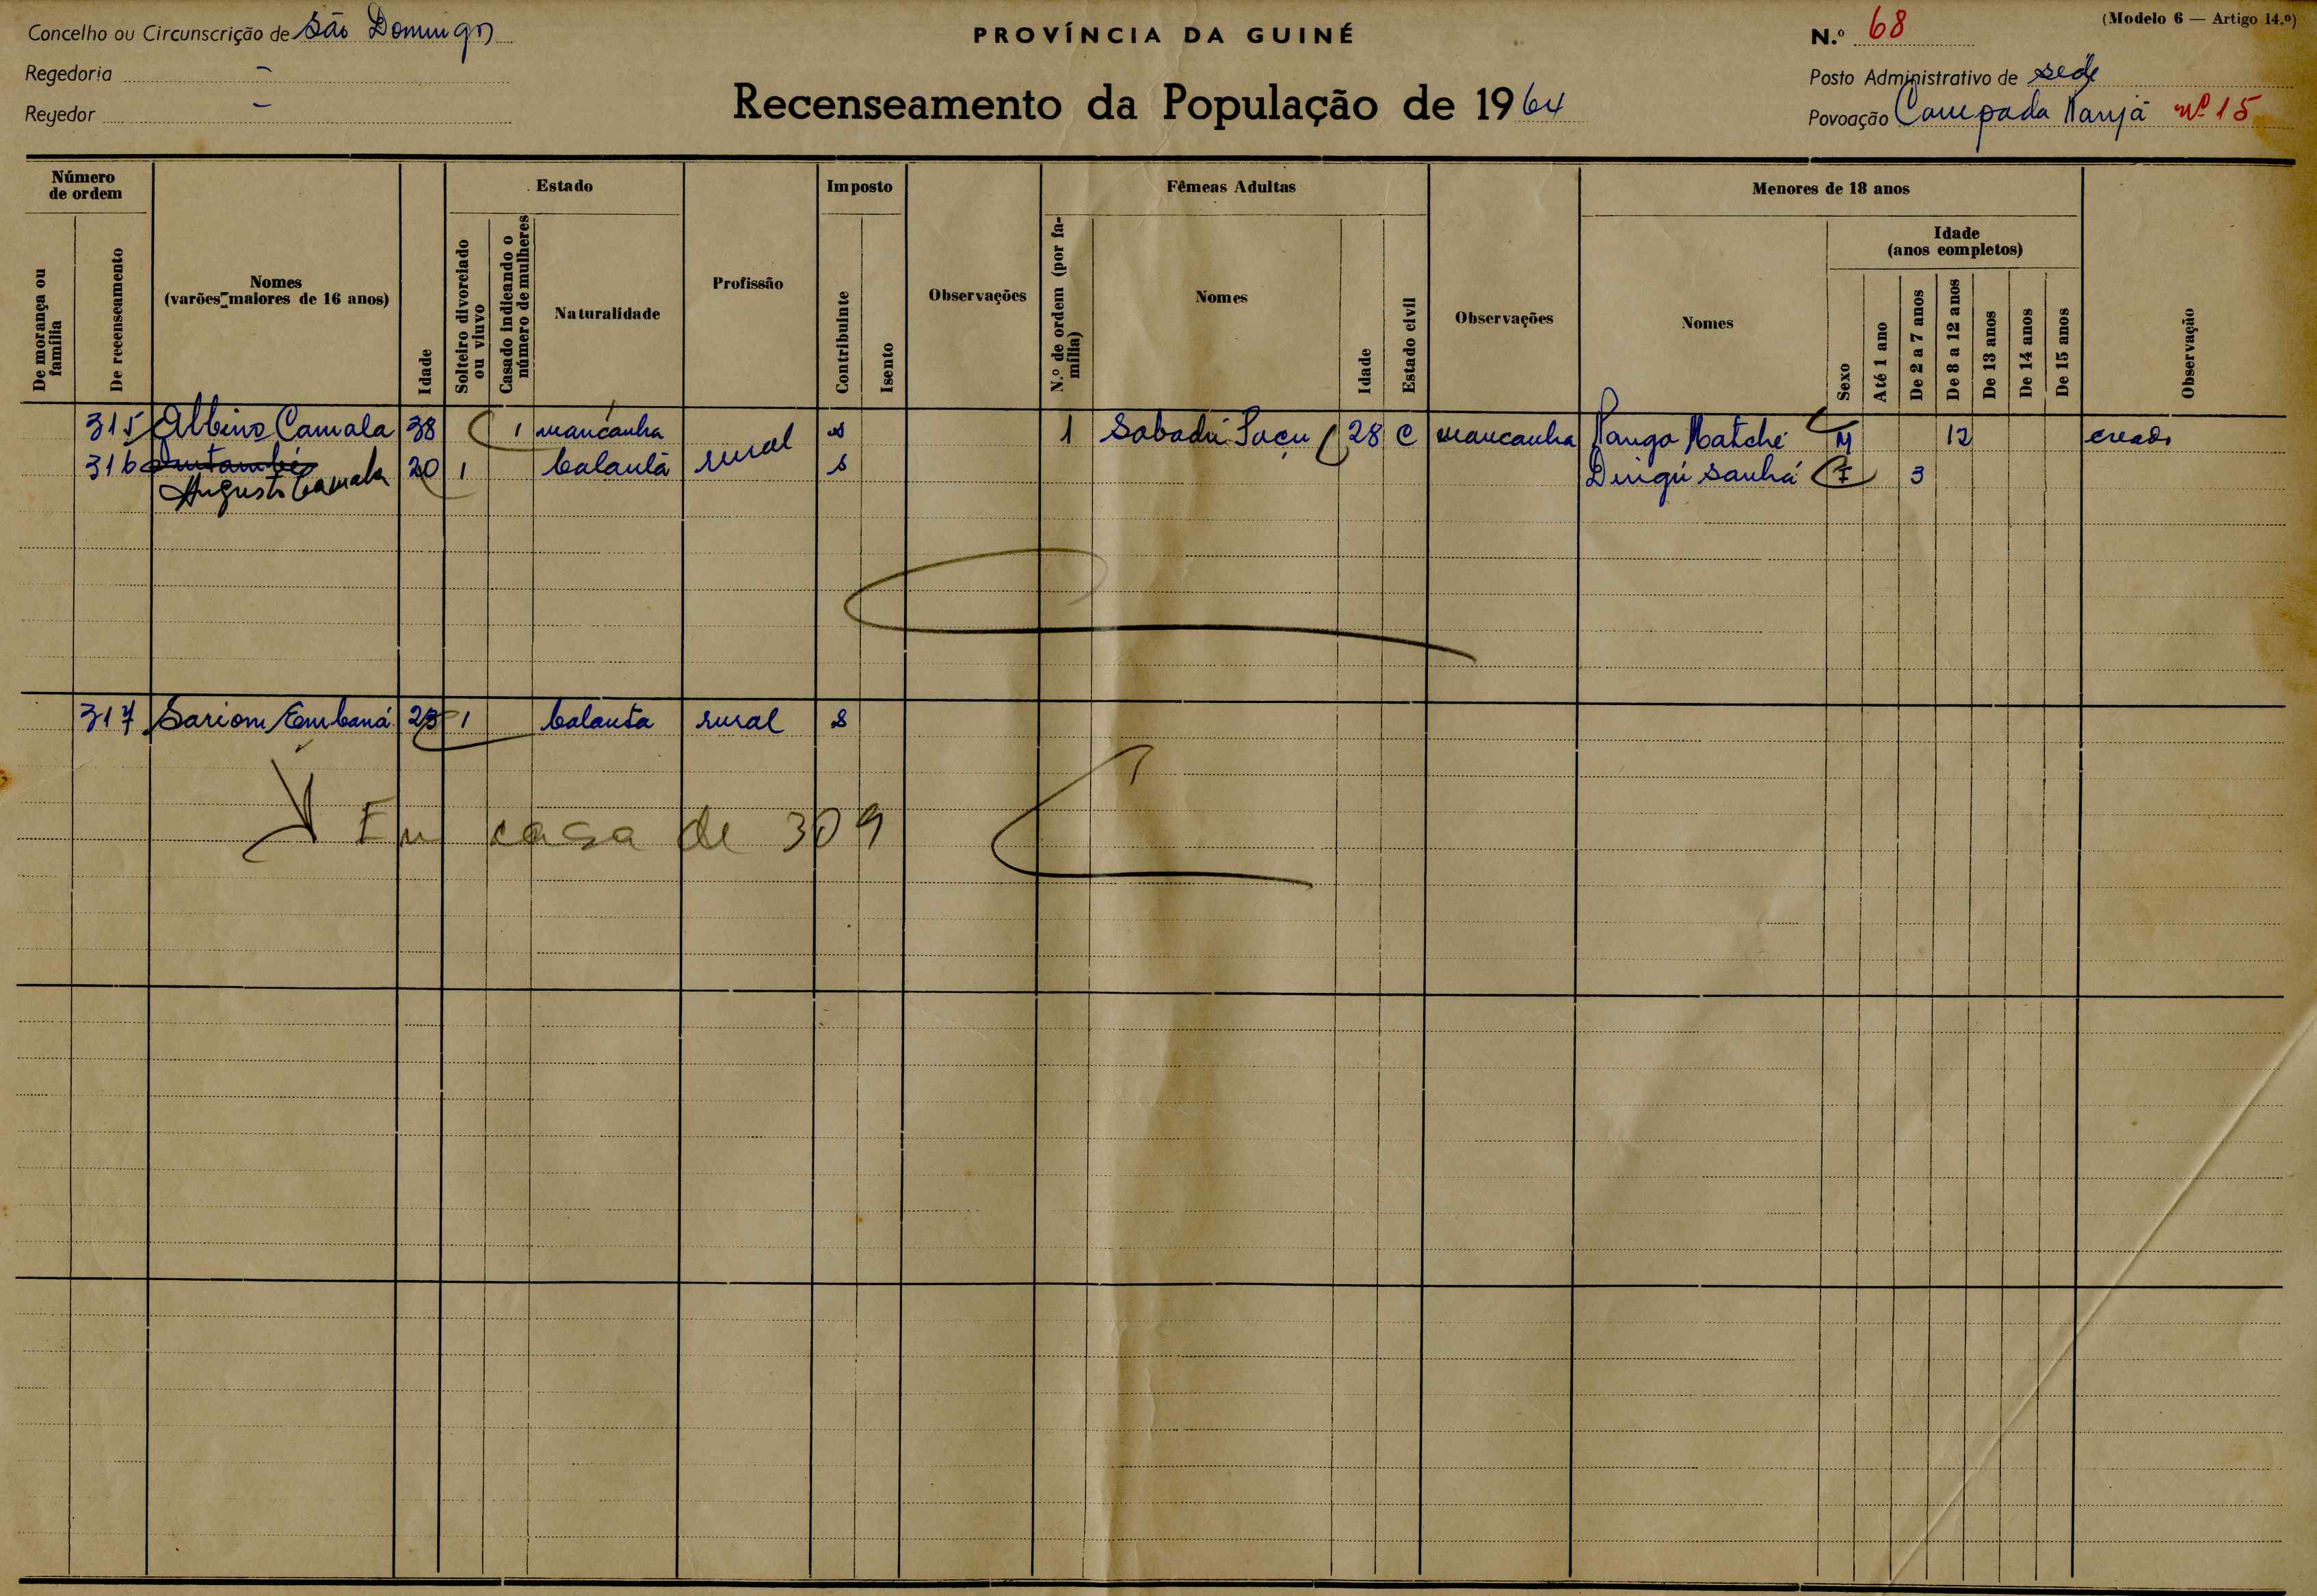 Concelho ou Circunscrição de São Domingos
Regedoria -
Regedor -
PROVÍNCIA DA GUINÉ
Recenseamento da População de 1964
(Modelo 6 — Artigo 14.º)
N.º 68
Posto Administrativo de sede
Povoação Campada Nº 15
Número de ordem
De morança ou família
De recenseamento
Nomes (varões maiores de 16 anos)
Idade
Estado
Solteiro divorciado ou viuvo
Casado indicando o número de mulheres
Naturalidade
Profissão
Imposto
Contribuinte
Isento
Observações
Fêmeas Adultas
N.º de ordem (por família)
Nomes
Idade
Estado civil
Observações
Menores de 18 anos
Nomes
Sexo
Idade (anos completos)
Até 1 ano
De 2 a 7 anos
De 8 a 12 anos
De 13 anos
De 14 anos
De 15 anos
Observação
315 Albino Camala 38 1 mancanha rural s 1 Sabadú 28 C mancanha M 12 creado
316 Augusto Camala 20 1 balanta s sanhá F 3
317 Sariom Embaná 23 1 balanta rural s
Em casa de 309